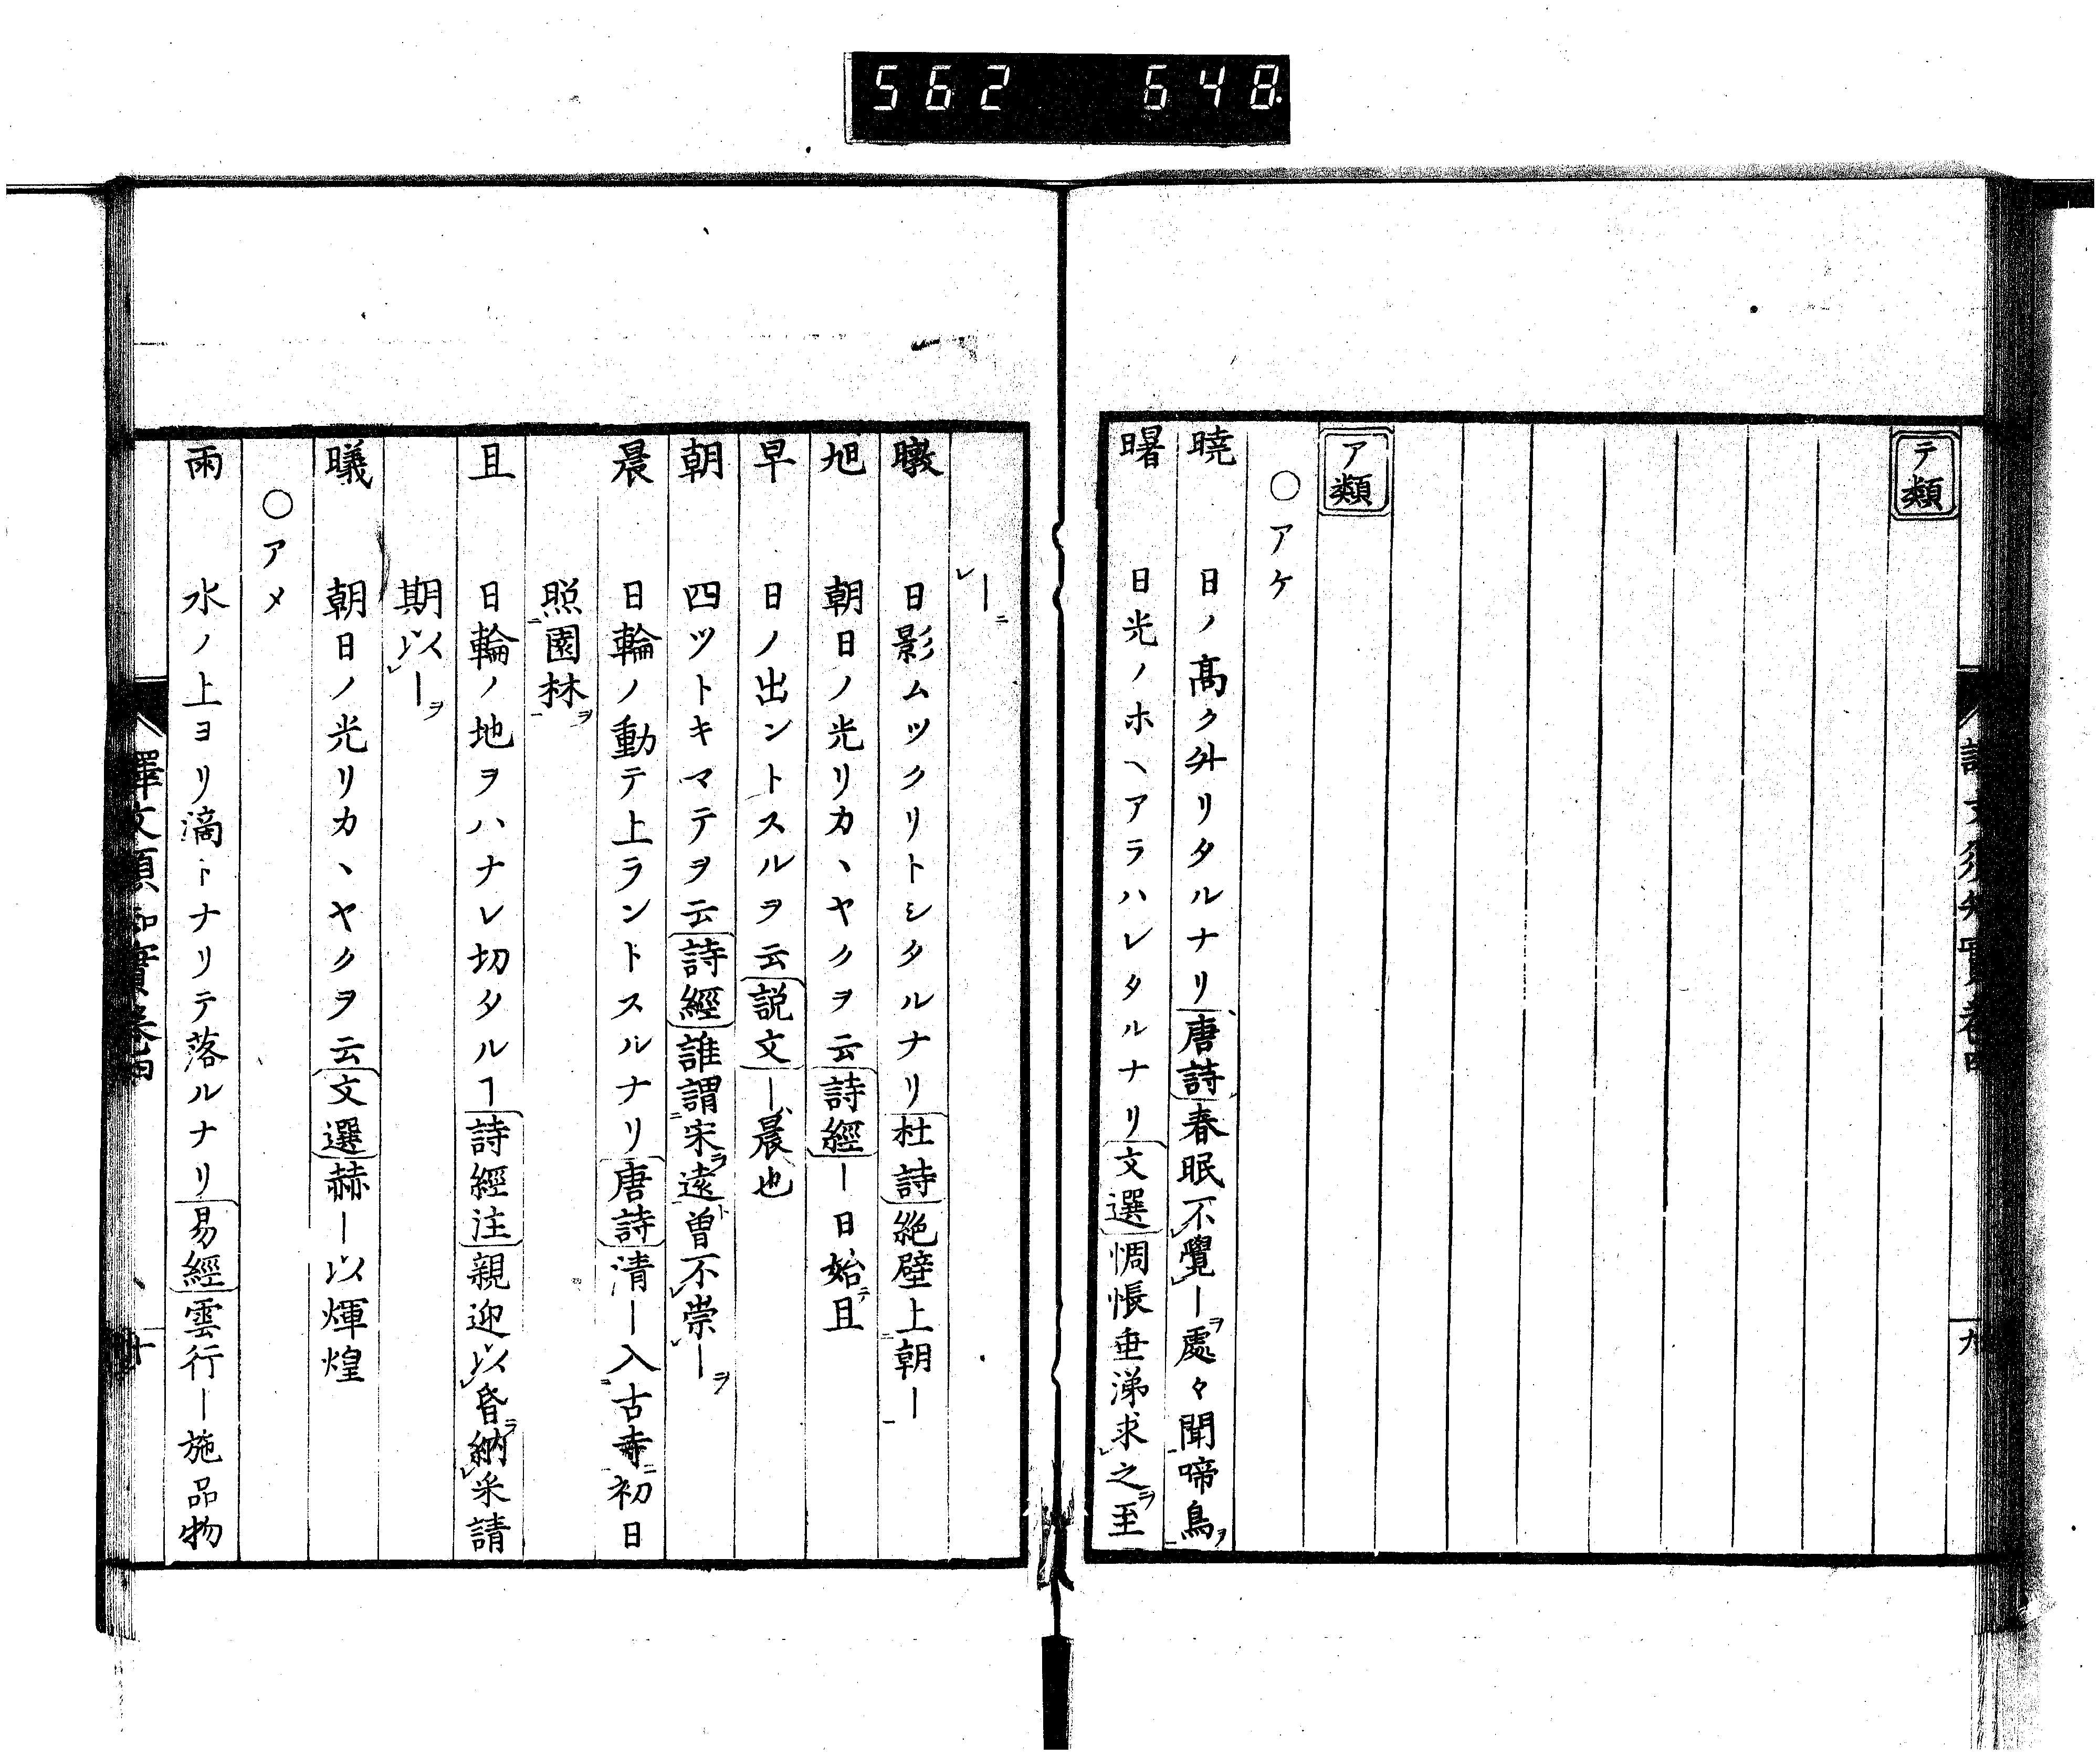 562 648
テ類
ア類
○アケ
曉 日ノ高ク舛リタルナリ唐詩春眠不覺ーヲ處々聞啼鳥ヲ
曙 日光ノホヘアラハレタルナリ文選惆悵垂涕求之ヲ至
九
レーニ
暾 日影ムツクリトシタルナリ杜詩絶壁上朝ー
旭 朝日ノ光リカヽヤクヲ云詩經ー日始旦
早 日ノ出ントスルヲ云説文ー晨也
朝 四ツトキマテヲ云詩經誰謂宋遠曽不崇ーヲ
晨 日輪ノ動テ上ラントスルナリ唐詩清ー入古寺初日
照園林ヲ
且 日輪ノ地ヲハナレ切タルヿ詩經注親迎以昏納采請
期以ーヲ
曦 朝日ノ光リカヽヤクヲ云文選赫ー以輝煌
○アメ
雨 水ノ上ヨリ滴トナリテ落ルナリ易經雲行ー施品物
譯文須知實卷四 十